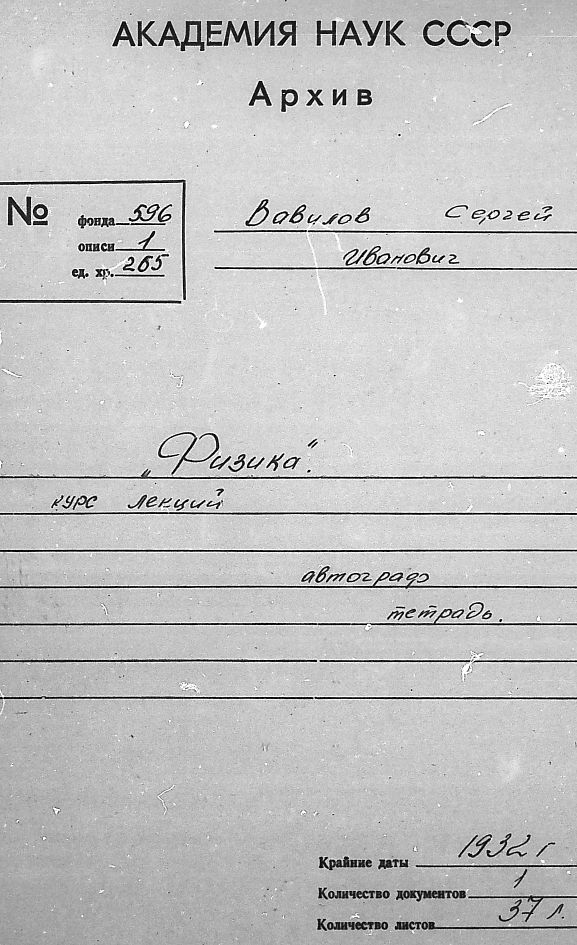 АКАДЕМИЯ НАУК СССР
Архив
№ фонда 596
описи 1
ед. хр. 265
Вавилов Сергей
Иванович
„Физика“.
курс лекций
автограф
тетрадь.
Крайние даты 1932 г
Количество документов 1
Количество листов 37 л.